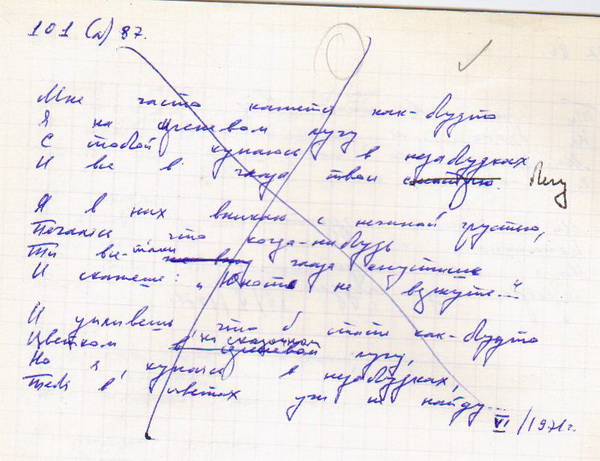 101 (а) 87.
Мне часто кажется как-будто
Я на сиреневом лугу
С тобой купаюсь в незабудках
И все в глаза твои смотрю. Лгу
Я в них вникаю с нежной грустью,
что когда-нибудь
Ты все-таки глаза опустишь
И скажешь: „Юность не вернуть..."
И уплывешь, что б стать как-будто
Цветком в на сказочном сиреневом лугу,
Но я, купаясь в незабудках,
Тебя в цветах уж не найду...
VI /1971г.